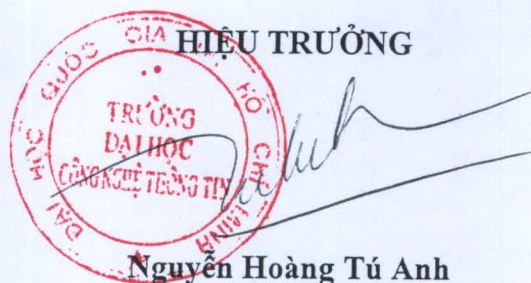 HIỆU TRƯỞNG
ĐẠI HỌC QUỐC GIA HỒ CHÍ MINH
TRƯỜNG
ĐẠI HỌC
CÔNG NGHỆ THÔNG TIN
Nguyễn Hoàng Tú Anh